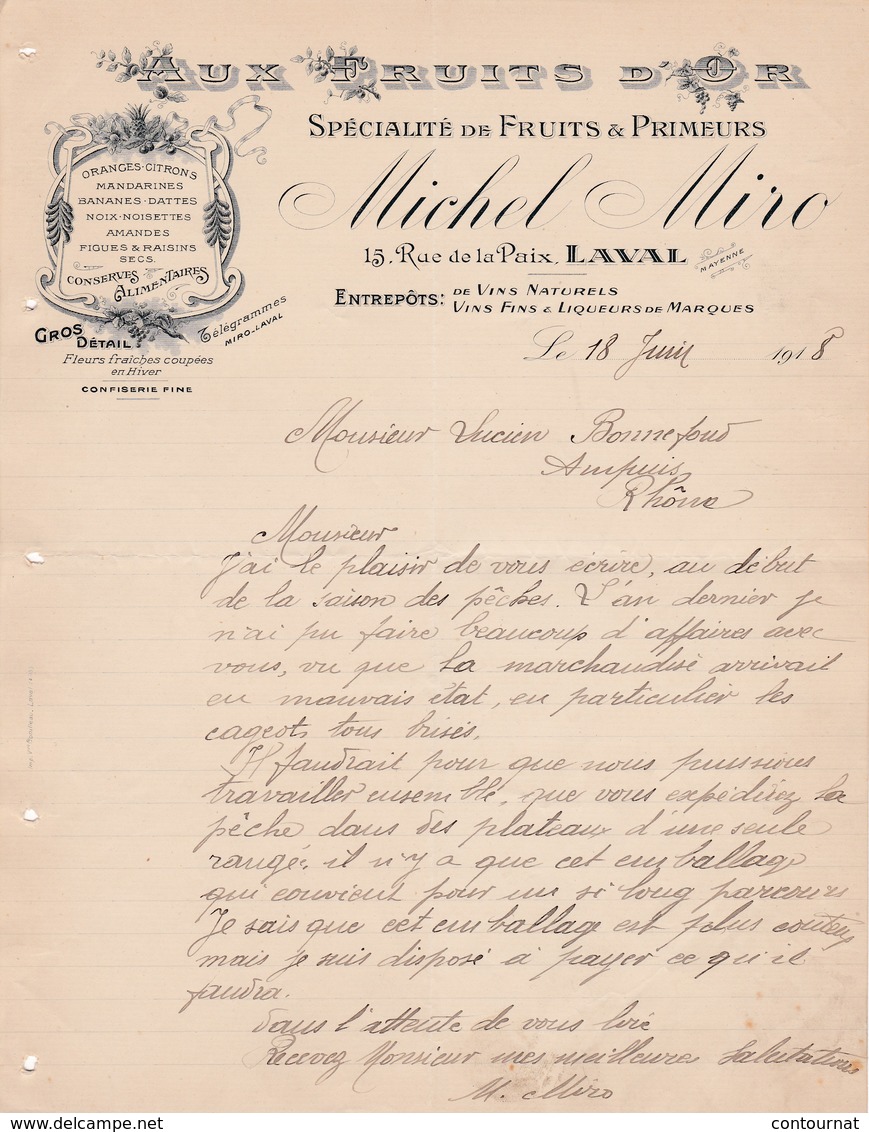 AUX FRUITS D'OR
SPÉCIALITÉ DE FRUITS & PRIMEURS
Michel Miro
15, Rue de la Paix, LAVAL
MAYENNE
ENTREPÔTS: DE VINS NATURELS
VINS FINS & LIQUEURS DE MARQUES
ORANGES-CITRONS
MANDARINES
BANANES-DATTES
NOIX-NOISETTES
AMANDES
FIGUES & RAISINS
SECS.
CONSERVES
ALIMENTAIRES
GROS
DÉTAIL
Télégrammes
MIRO-LAVAL
Fleurs fraîches coupées
en Hiver
CONFISERIE FINE
Le 18 Juin 1918
Monsieur Lucien Bonnefoud
Ampuis
Rhône
Monsieur
J'ai le plaisir de vous écrire, au début
de la saison des pêches. L'an dernier je
n'ai pu faire beaucoup d'affaires avec
vous, vu que la marchandise arrivait
en mauvais état, en particulier les
cageots tous brisés.
Il faudrait pour que nous puissions
travailler ensemble, que vous expédiiez la
pêche dans des plateaux d'une seule
rangée, il n'y a que cet emballage
qui convient pour un si long parcours
Je sais que cet emballage est plus couteux
mais je suis disposé à payer ce qu'il
faudra.
Dans l'attente de vous lire
Recevez Monsieur mes meilleures Salutations
M. Miro
www.delcampe.net
contournat